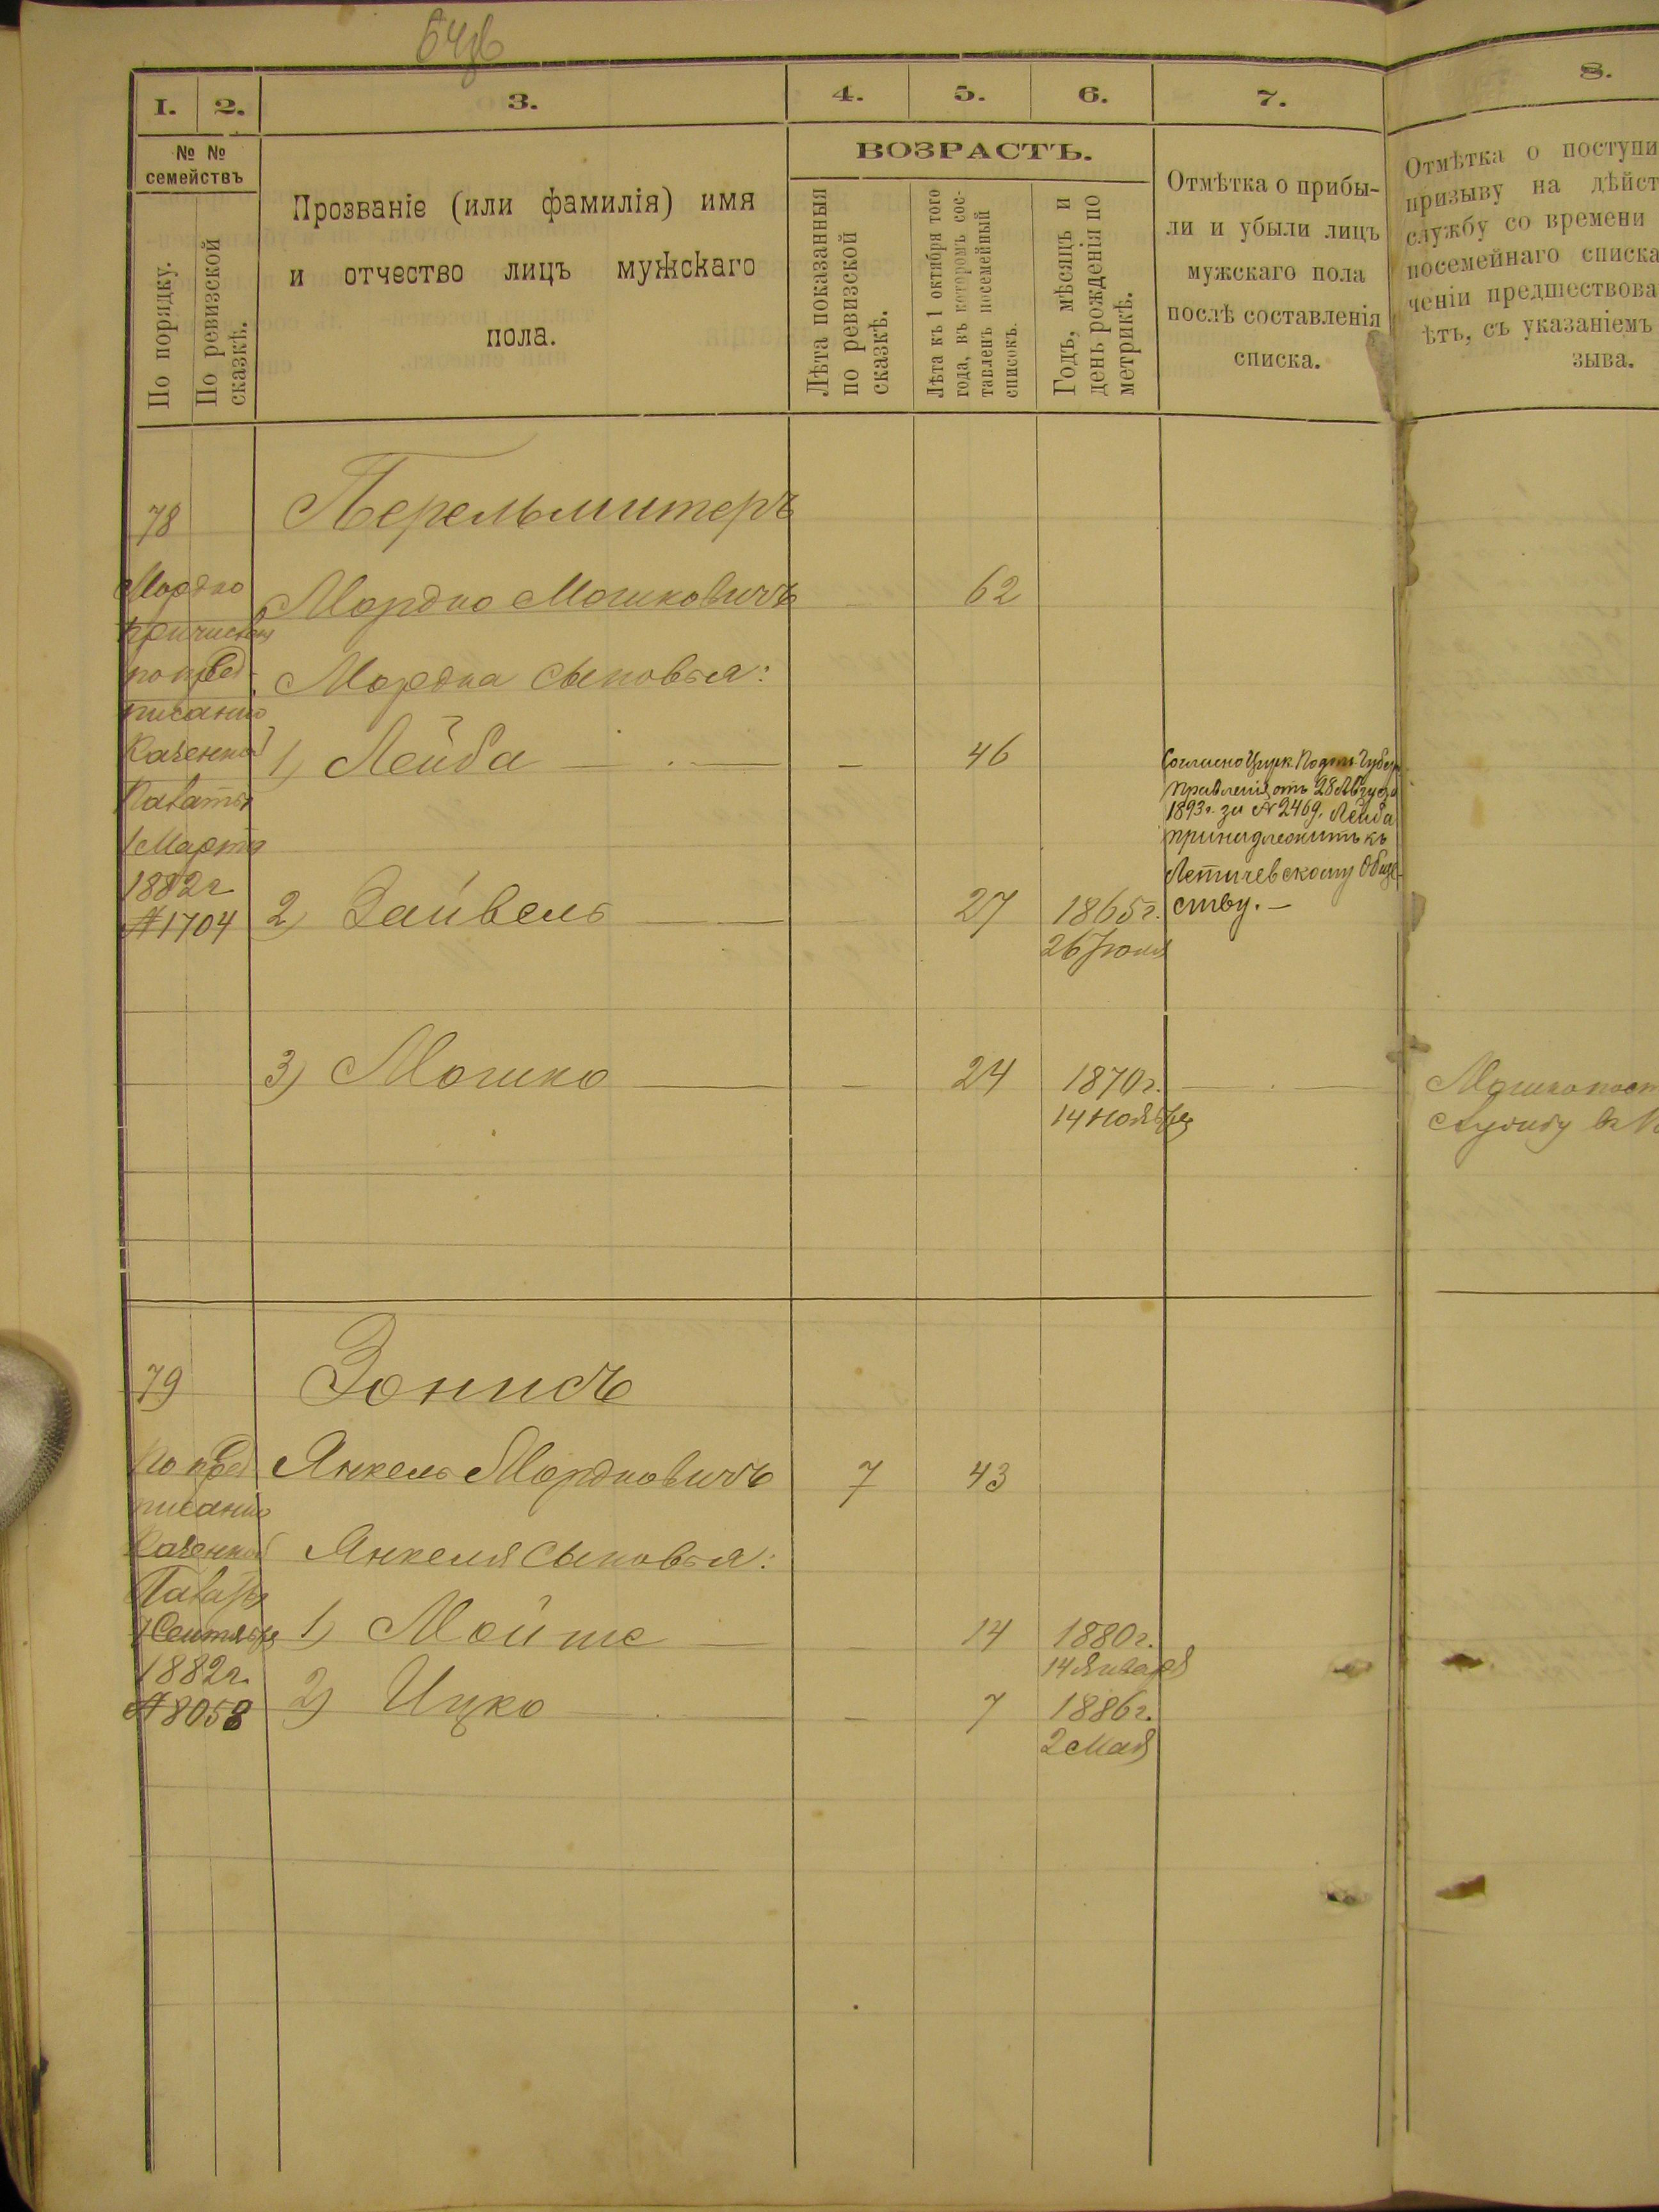 1.
2.
3.
4.
5.
6.
7.
8.
№ №
семействъ
По порядку.
По ревизской
сказкѣ.
Прозваніе (или фамилія) имя
и отчество лицъ мужскаго
пола.
ВОЗРАСТЪ.
Лѣта показанныя
по ревизской
сказкѣ.
Лѣта къ 1 октября того
года, въ которомъ сос-
тавленъ посемейный
списокъ.
Годъ, мѣсяцъ и
день рожденія по
метрикѣ.
Отмѣтка о прибы-
ли и убыли лицъ
мужскаго пола
послѣ составленія
списка.
Отмѣтка о поступи
призыву на дѣйст
службу со времени
посемейнаго списка
ченіи предшествова
ѣтъ, съ указаніемъ
зыва.
78
Перельмитеръ
Мордко
причислен
по пред-
писанію
Казенной
Палаты
1 Марта
1882 г
№ 1704
Мордко Мошковичъ — 62
Мордка сыновья:
1) Лейба — — 46
Согласно Цирк. Подол. Губер.
Правленія отъ 28 Августа
1893 г. за № 2469, Лейба
принадлежитъ къ
Летичевскому Обще-
ству. —
2) Зайвель — — 27 1865 г.
26 Іюля
3) Мошко — — 24 1870 г. —
14 Ноября
Мошко пост
службу въ
79
Зонисъ
По пред
писанію
Казенной
Палаты
7 Сентября
1882 г.
№ 8058
Янкель Мордковичъ 7 43
Янкеля сыновья:
1) Мойше — — 14 1880 г.
14 Января
2) Ицко — — 7 1886 г.
2 Мая